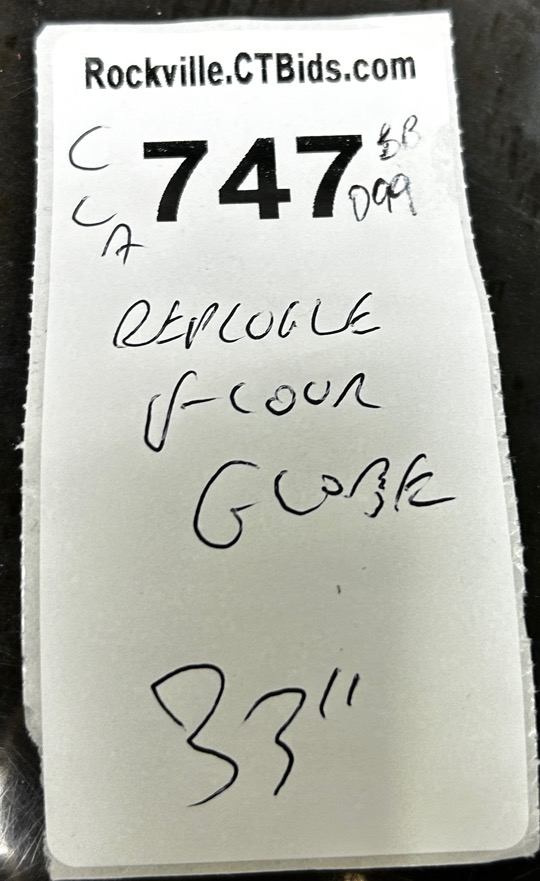 Rockville.CTBids.com
C 747 BB
C D99
A
REPLOGLE
FLOOR
GLOBE
33"